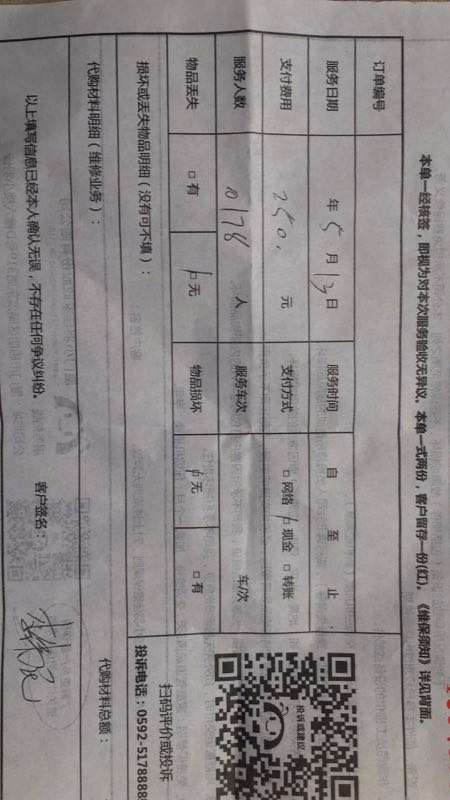 本单一经核签，即视为对本次服务验收无异议。本单一式两份，客户留存一份(红)。《维保须知》详见背面。
订单编号
服务日期 年 5 月 13 日 服务时间 自 至 止
支付费用 250. 元 支付方式 □网络 □现金 □转账
服务人数 0178 人 服务车次 车/次
物品丢失 □有 □无 物品损坏 □无 □有
损坏或丢失物品明细（没有可不填）：
代购材料明细（维修业务）：
代购材料总额：
以上填写信息已经本人确认无误，不存在任何争议纠纷。 客户签名：
投诉或建议
扫码评价或投诉
投诉电话：0592-5178888